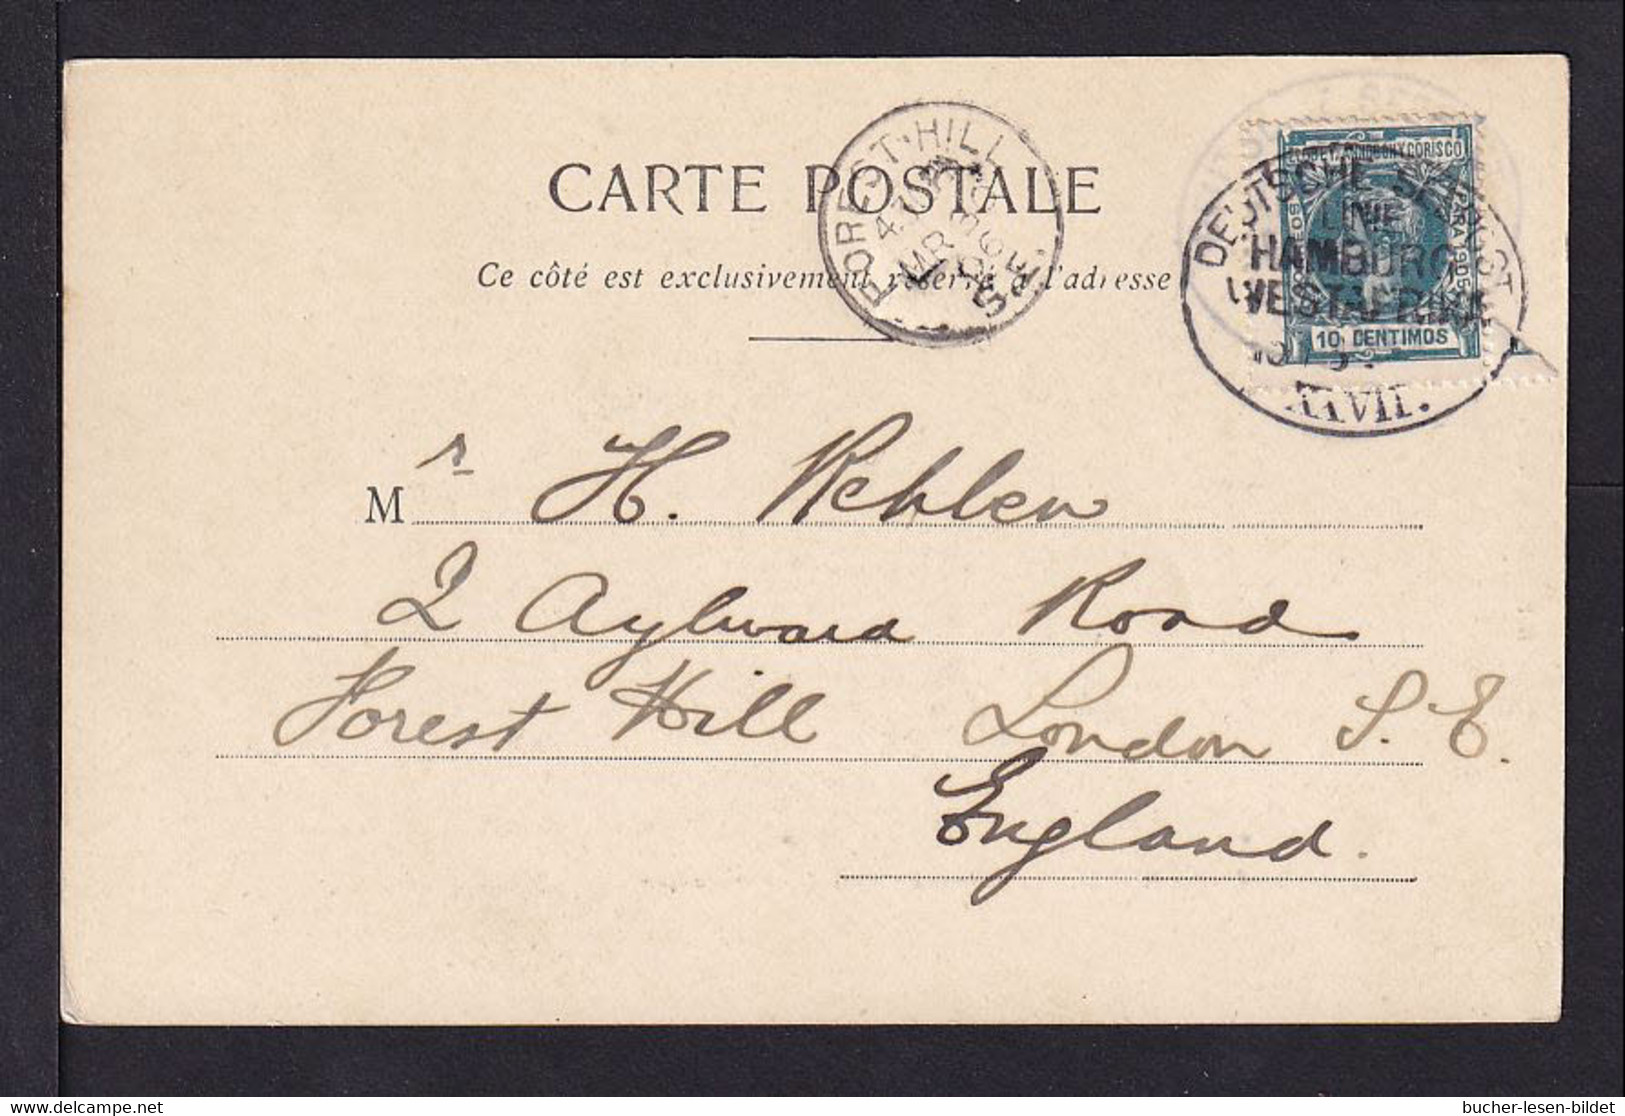 FOREST·HILL
MR
S.E.
CARTE POSTALE
Ce côté est exclusivement réservé à l'adresse
ELOBEY, ANNOBON Y CORISCO
PARA 1905
10 CENTIMOS
DEUTSCHE SEEPOST
LINIE
HAMBURG
WESTAFRIKA
XXVII.
Mr H. Rehlen
2 Aylward Road
Forest Hill London S.E.
England.
bucher-lesen-bildet
the-best-for-stamps & coins DELCAMPE